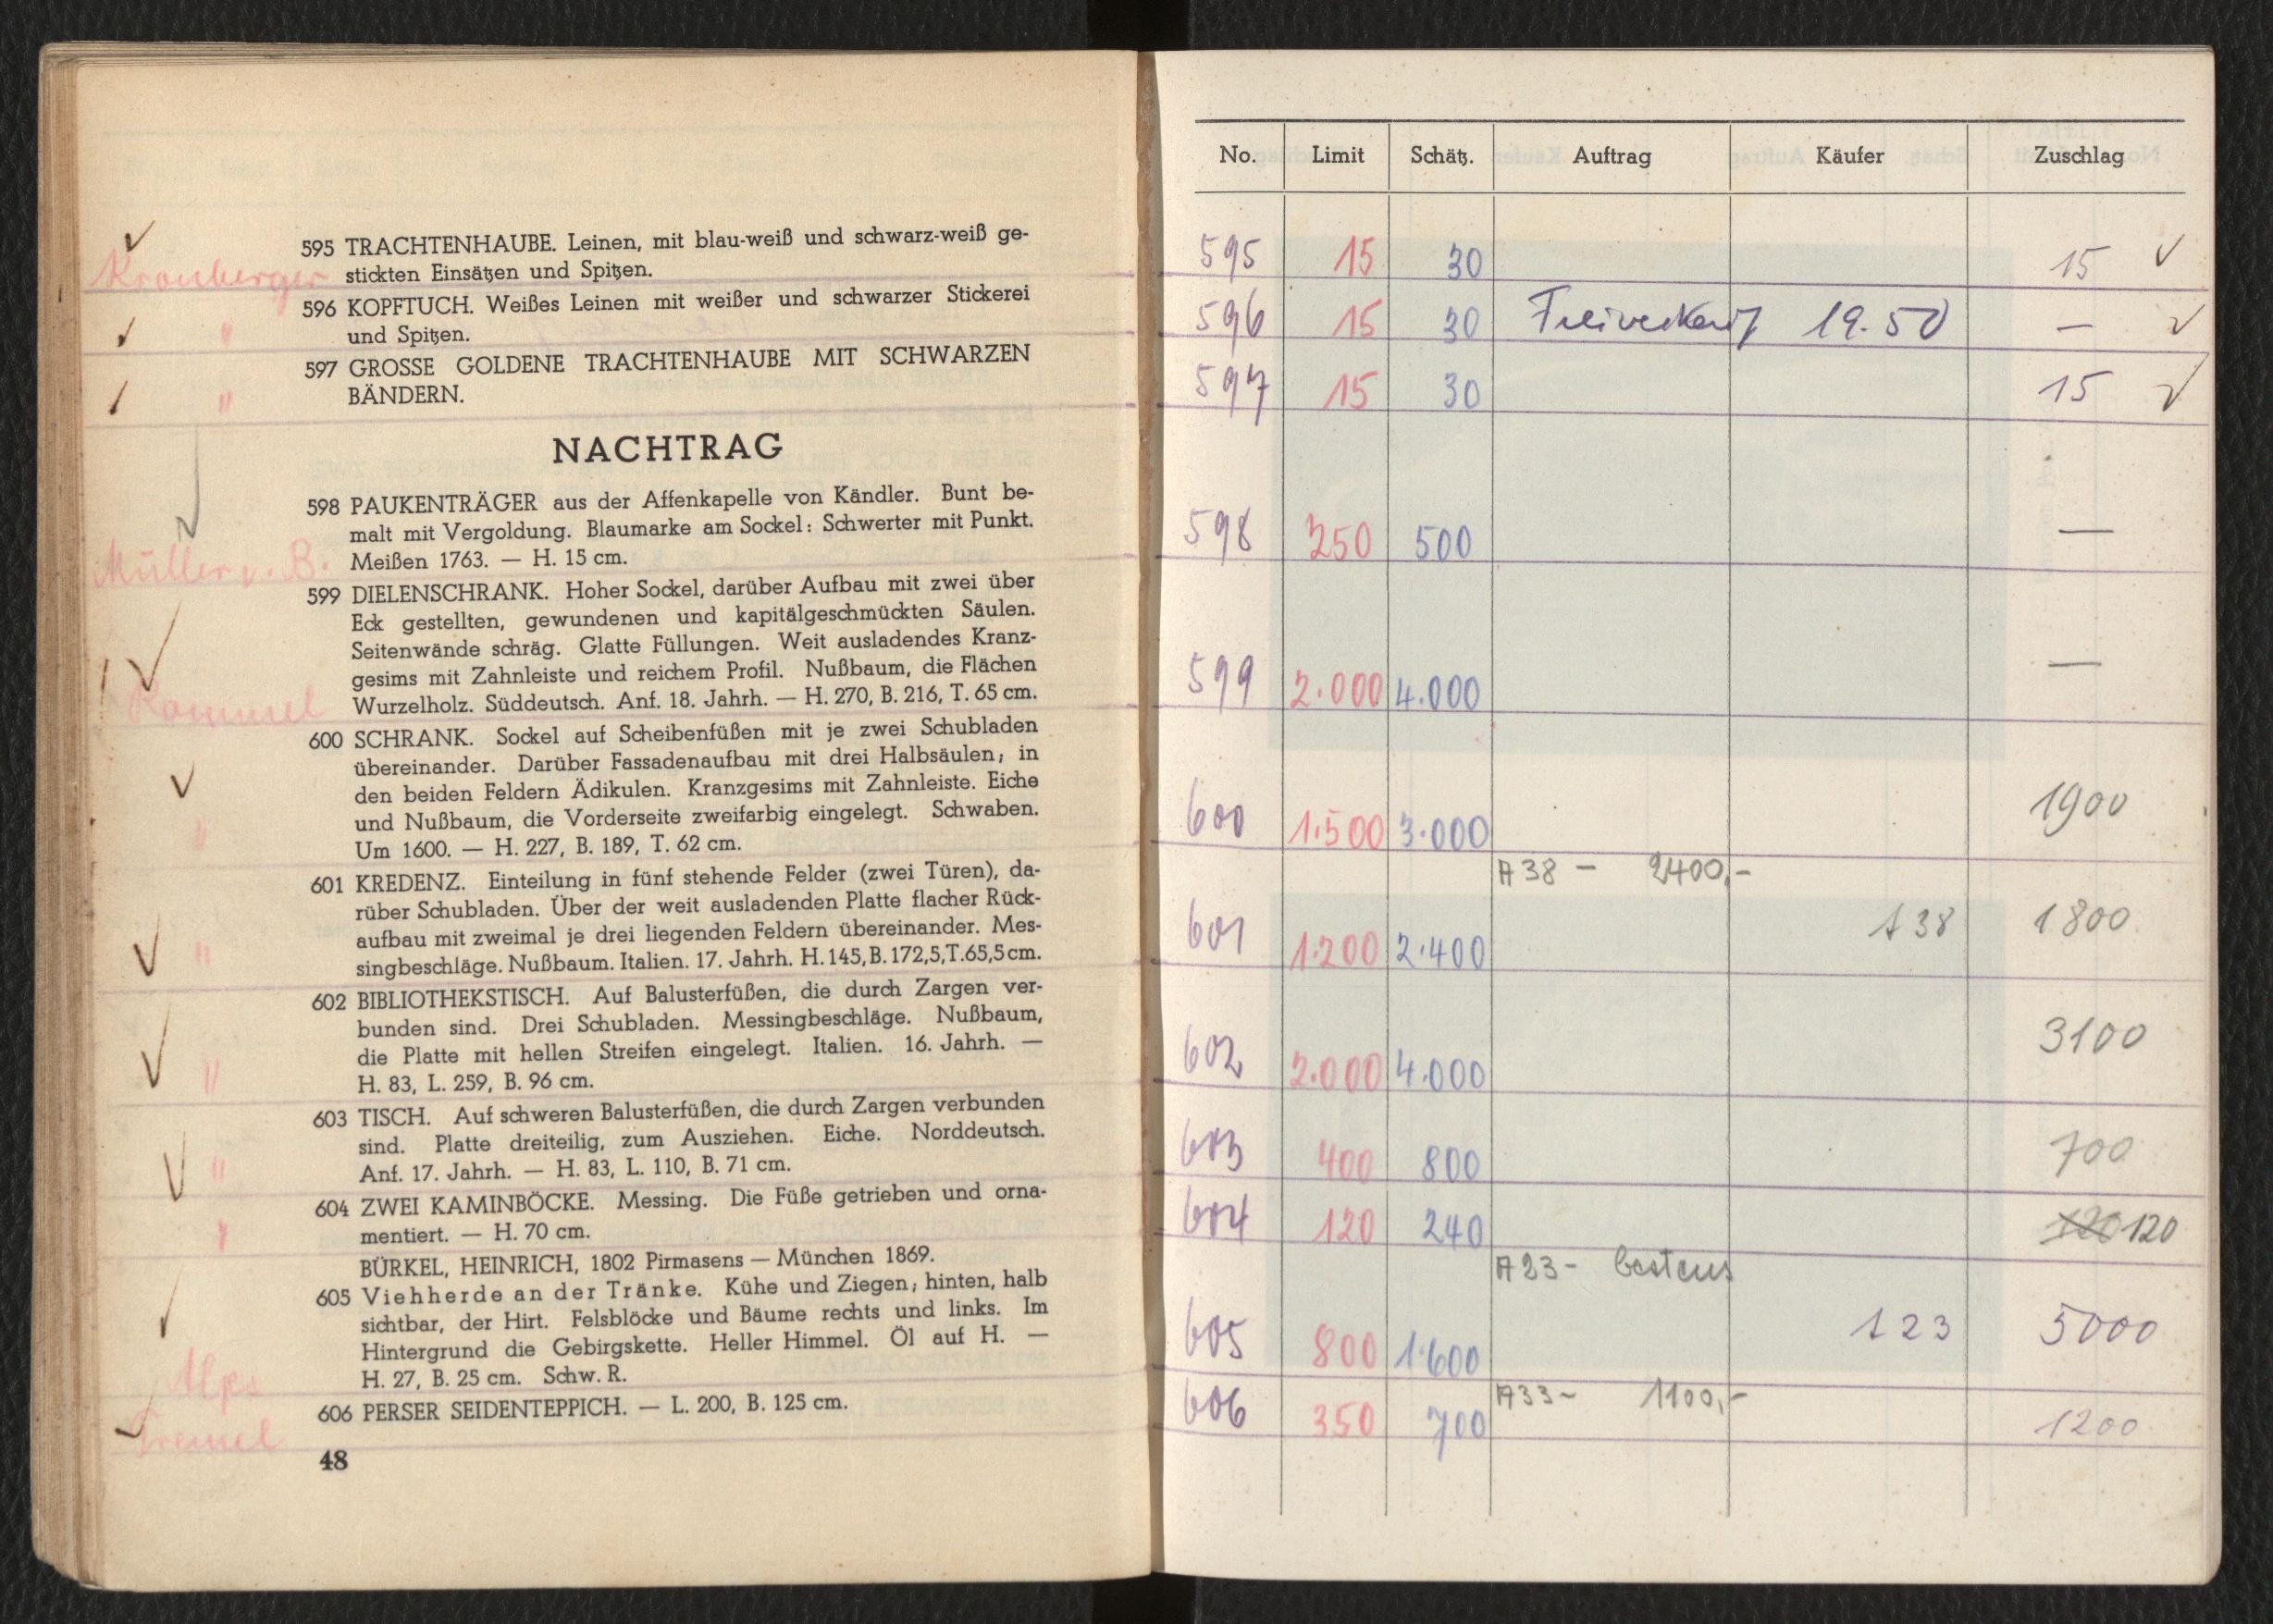 595 TRACHTENHAUBE. Leinen, mit blau-weiß und schwarz-weiß ge-
Kronberger stickten Einsätzen und Spitzen.
596 KOPFTUCH. Weißes Leinen mit weißer und schwarzer Stickerei
" und Spitzen.
597 GROSSE GOLDENE TRACHTENHAUBE MIT SCHWARZEN
" BÄNDERN.
NACHTRAG
598 PAUKENTRÄGER aus der Affenkapelle von Kändler. Bunt be-
malt mit Vergoldung. Blaumarke am Sockel: Schwerter mit Punkt.
Müller v. B. Meißen 1763. — H. 15 cm.
599 DIELENSCHRANK. Hoher Sockel, darüber Aufbau mit zwei über
Eck gestellten, gewundenen und kapitälgeschmückten Säulen.
Seitenwände schräg. Glatte Füllungen. Weit ausladendes Kranz-
gesims mit Zahnleiste und reichem Profil. Nußbaum, die Flächen
Rommel Wurzelholz. Süddeutsch. Anf. 18. Jahrh. — H. 270, B. 216, T. 65 cm.
600 SCHRANK. Sockel auf Scheibenfüßen mit je zwei Schubladen
übereinander. Darüber Fassadenaufbau mit drei Halbsäulen; in
den beiden Feldern Ädikulen. Kranzgesims mit Zahnleiste. Eiche
" und Nußbaum, die Vorderseite zweifarbig eingelegt. Schwaben.
Um 1600. — H. 227, B. 189, T. 62 cm.
601 KREDENZ. Einteilung in fünf stehende Felder (zwei Türen), da-
rüber Schubladen. Über der weit ausladenden Platte flacher Rück-
" aufbau mit zweimal je drei liegenden Feldern übereinander. Mes-
singbeschläge. Nußbaum. Italien. 17. Jahrh. H. 145, B. 172,5, T. 65,5 cm.
602 BIBLIOTHEKSTISCH. Auf Balusterfüßen, die durch Zargen ver-
bunden sind. Drei Schubladen. Messingbeschläge. Nußbaum,
die Platte mit hellen Streifen eingelegt. Italien. 16. Jahrh. —
" H. 83, L. 259, B. 96 cm.
603 TISCH. Auf schweren Balusterfüßen, die durch Zargen verbunden
sind. Platte dreiteilig, zum Ausziehen. Eiche. Norddeutsch.
" Anf. 17. Jahrh. — H. 83, L. 110, B. 71 cm.
604 ZWEI KAMINBÖCKE. Messing. Die Füße getrieben und orna-
" mentiert. — H. 70 cm.
BÜRKEL, HEINRICH, 1802 Pirmasens — München 1869.
605 Viehherde an der Tränke. Kühe und Ziegen; hinten, halb
sichtbar, der Hirt. Felsblöcke und Bäume rechts und links. Im
Hintergrund die Gebirgskette. Heller Himmel. Öl auf H. —
Alps H. 27, B. 25 cm. Schw. R.
606 PERSER SEIDENTEPPICH. — L. 200, B. 125 cm.
48
No. Limit Schätz. Auftrag Käufer Zuschlag
595 15 30 15 ✓
596 15 30 Freiverkauf 19.50 — ✓
597 15 30 15 ✓
598 250 500 —
599 2.000 4.000 —
600 1.500 3.000 1900
A 38 – 2400,–
601 1.200 2.400 A 38 1800
602 2.000 4.000 3100
603 400 800 700
604 120 240 120 120
A 23 – bestens
605 800 1.600 A 23 5000
A 33 – 1100,–
606 350 700 1200